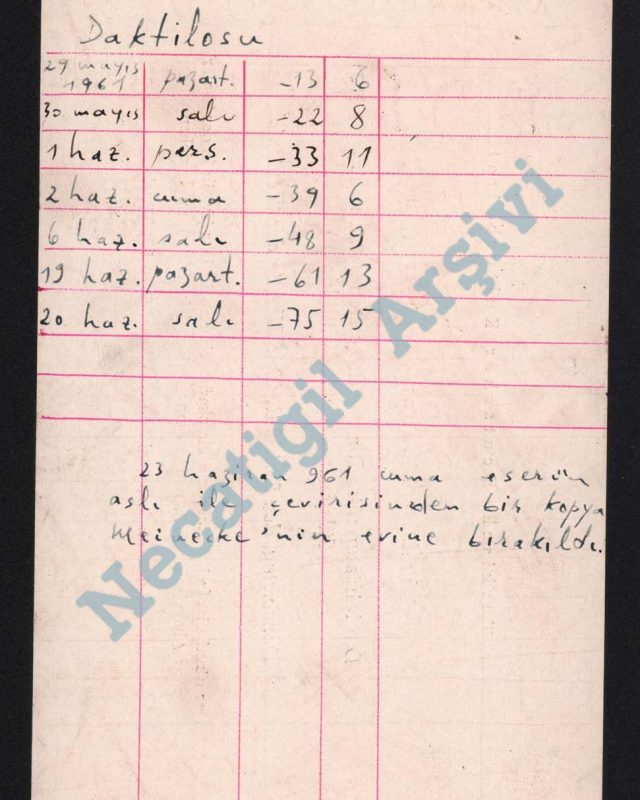 Daktilosu
29 mayıs 1961 pazart. -13 6
30 mayıs salı -22 8
1 haz. perş. -33 11
2 haz. cuma -39 6
6 haz. salı -48 9
19 haz. pazart. -61 13
20 haz. salı -75 15
23 haziran 961 cuma eserin
aslı ile çevirisinden bir kopya
Meinecke'nin evine bırakıldı.
Necatigil Arşivi